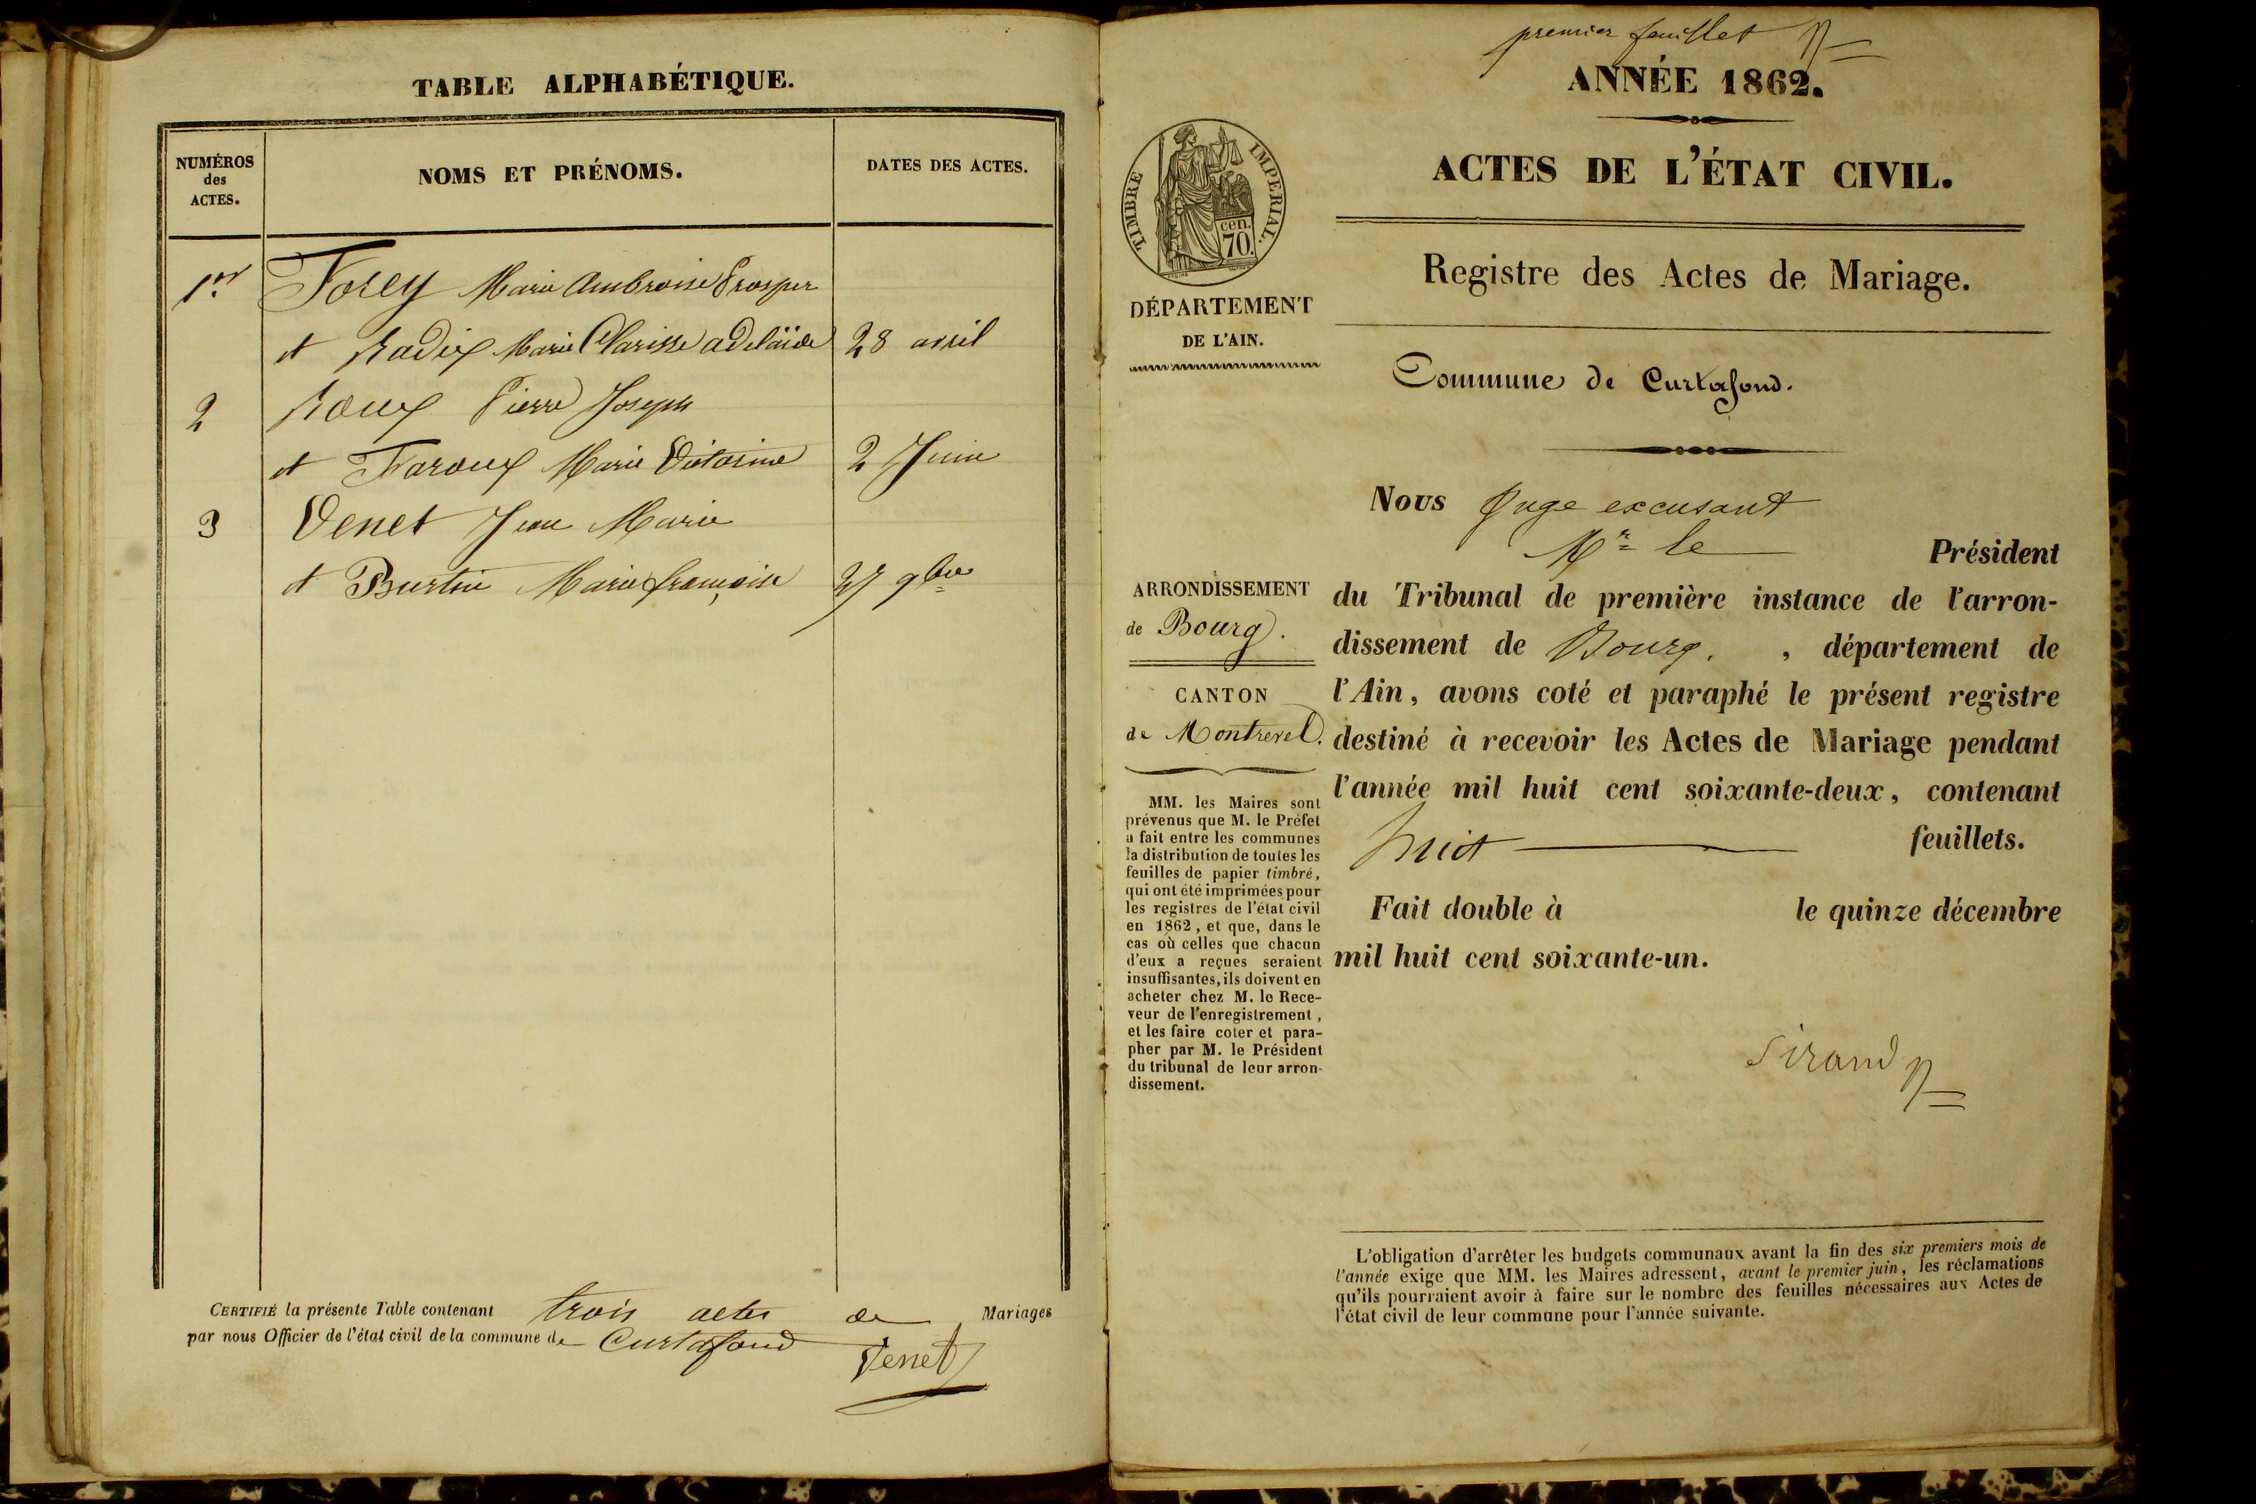 TABLE ALPHABÉTIQUE.
NUMÉROS
des
ACTES.
NOMS ET PRÉNOMS.
DATES DES ACTES.
1er Forey Marie Ambroise Prosper
et Radix Marie Clarisse adelaïde 28 avril
2 Roux Pierre Joseph
et Faroux Marie Victorine 2 Juin
3 Venet Jean Marie
et Burtin Marie françoise 27 9bre
CERTIFIÉ la présente Table contenant trois actes de Mariages
par nous Officier de l'état civil de la commune de Curtafond
Venet
premier feuillet
ANNÉE 1862.
ACTES DE L'ÉTAT CIVIL.
TIMBRE IMPÉRIAL.
cen.
70.
Registre des Actes de Mariage.
DÉPARTEMENT
DE L'AIN.
Commune de Curtafond.
Nous Juge excusant
Mr le Président
ARRONDISSEMENT
de Bourg.
CANTON
de Montrevel.
du Tribunal de première instance de l'arron-
dissement de Bourg. , département de
l'Ain, avons coté et paraphé le présent registre
destiné à recevoir les Actes de Mariage pendant
l'année mil huit cent soixante-deux, contenant
huit feuillets.
Fait double à le quinze décembre
mil huit cent soixante-un.
Sirand
MM. les Maires sont
prévenus que M. le Préfet
a fait entre les communes
la distribution de toutes les
feuilles de papier timbré,
qui ont été imprimées pour
les registres de l'état civil
en 1862, et que, dans le
cas où celles que chacun
d'eux a reçues seraient
insuffisantes, ils doivent en
acheter chez M. le Rece-
veur de l'enregistrement,
et les faire coter et para-
pher par M. le Président
du tribunal de leur arron-
dissement.
L'obligation d'arrêter les budgets communaux avant la fin des six premiers mois de
l'année exige que MM. les Maires adressent, avant le premier juin, les réclamations
qu'ils pourraient avoir à faire sur le nombre des feuilles nécessaires aux Actes de
l'état civil de leur commune pour l'année suivante.